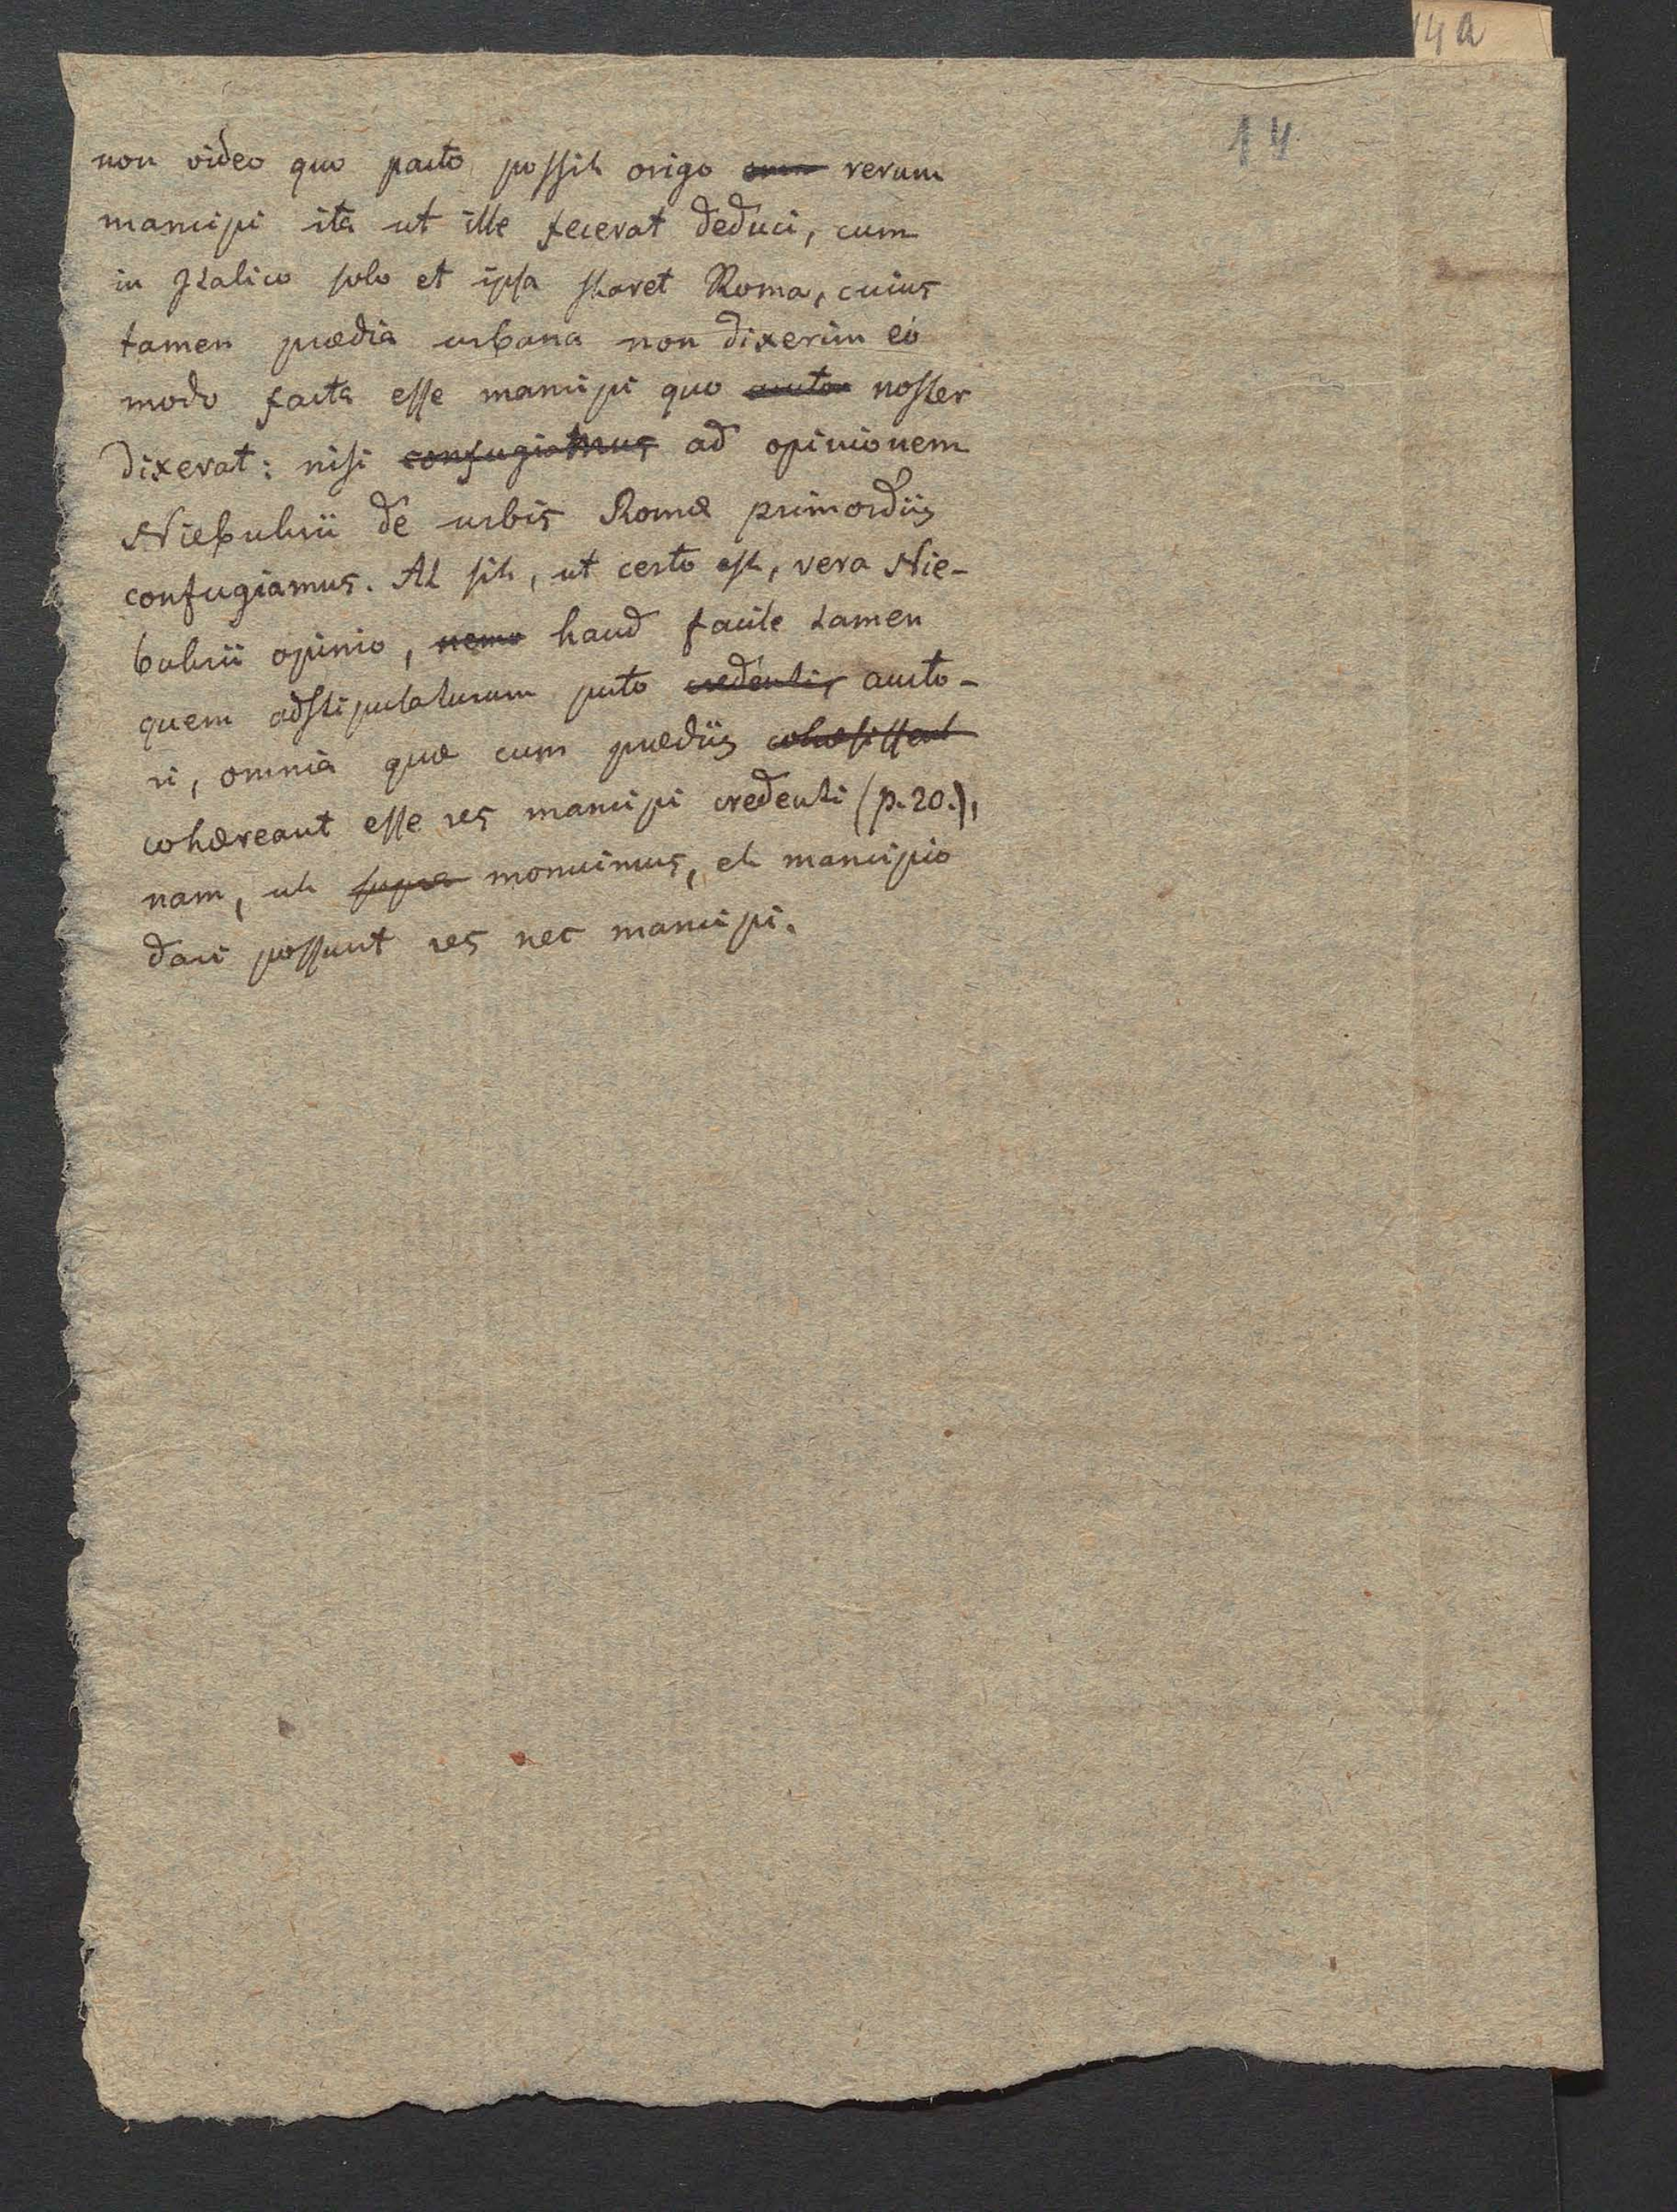 14a
14
non video quo pacto possit origo rerum
mancipi ita ut ille fecerat deduci, cum
in Italico solo et ipsa staret Roma, cuius
tamen prædia urbana non dixerim eo
modo facta esse mancipi quo auctor noster
dixerat: nisi confugiamus ad opinionem
Niebuhrii de urbis Romæ primordiis
confugiamus. At sit, ut certo est, vera Nie-
buhrii opinio, nemo haud facile tamen
quem adstipulaturum puto credentis aucto-
ri, omnia quæ cum prædiis cohæsissent
cohæreant esse res mancipi credenti (p. 20.),
nam, ut supra monuimus, et mancipio
dari possunt res nec mancipi.